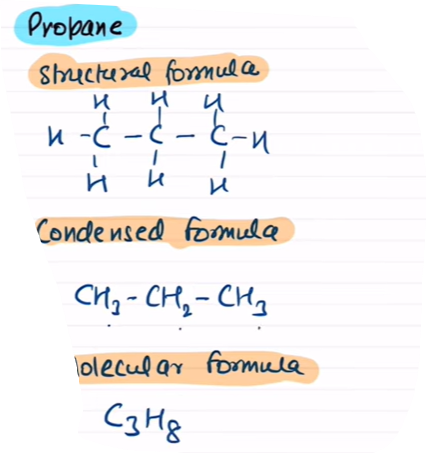 Propane
Structural formula
H H H
H - C - C - C - H
H H H
Condensed formula
CH₃ - CH₂ - CH₃
olecular formula
C₃H₈